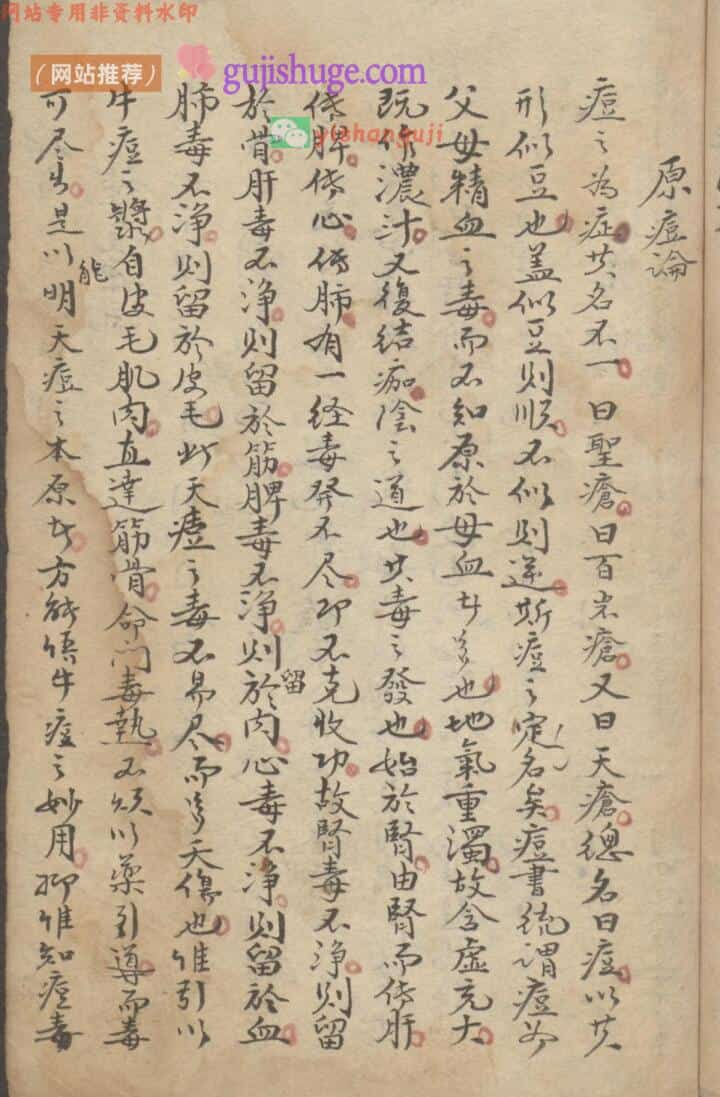 网站专用非资料水印
（网站推荐）
gujishuge.com
yishanguji
原痘論
痘之為症其名不一曰聖瘡曰百岁瘡又曰天瘡總名曰痘以其
形似豆也盖似豆則順不似則逆斯痘之定名矣痘書統謂痘為
父母精血之毒而不知原於母血者多也地氣重濁故含虛充大
既作濃汁又復結痂陰之道也其毒之發也始於腎由腎而傳肝
傳脾傳心傳肺有一经毒発不尽即不克收功故腎毒不浄則留
於骨肝毒不浄則留於筋脾毒不浄則留於肉心毒不浄則留於血
肺毒不浄則留於皮毛此天痘之毒不易尽而多夭傷也惟引以
牛痘之漿自皮毛肌肉直達筋骨命门毒熱不煩以藥引導而毒
可尽出是以能明天痘之本原者方能悟牛痘之妙用抑惟知痘毒